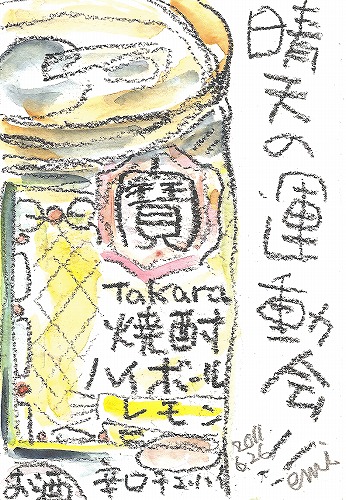 晴天の運動会
寶
Takara
焼酎
ハイボール
レモン
お酒
辛口チューハイ
2011
6.26
emi